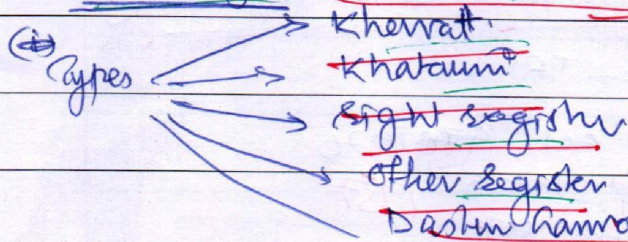 (i) Types
Khewatt.
Khatauni
Right Register
Other Register
Dastur